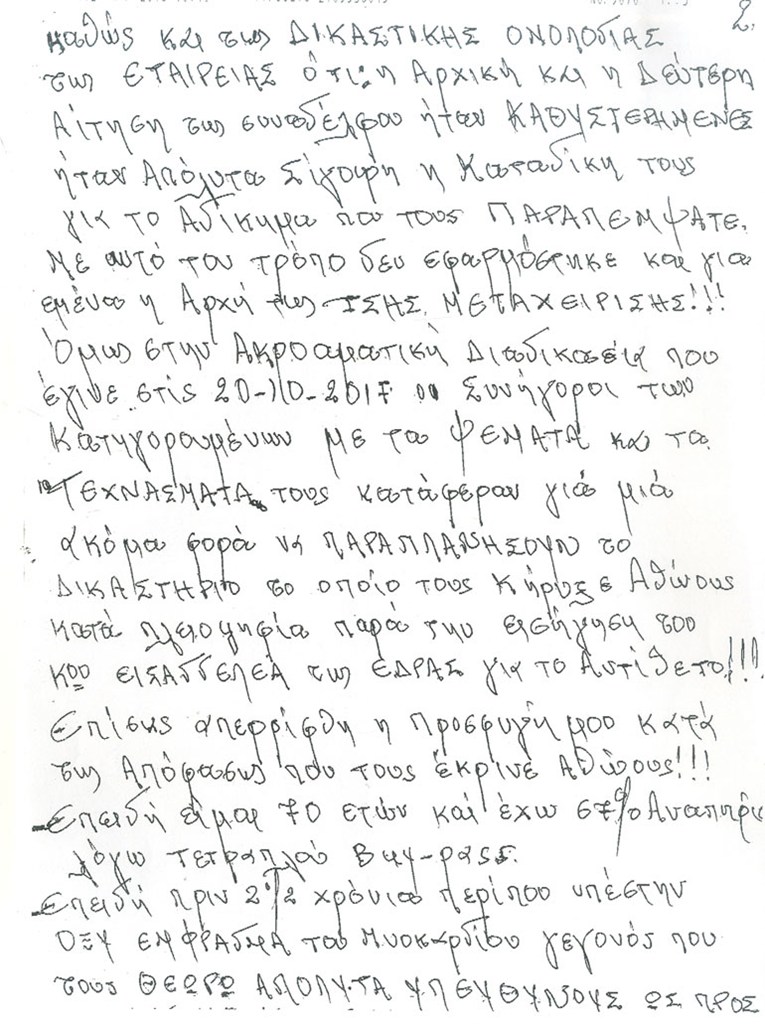 2.
καθώς και της ΔΙΚΑΣΤΙΚΗΣ ΟΜΟΛΟΓΙΑΣ
της ΕΤΑΙΡΕΙΑΣ ότι η Αρχική και η Δεύτερη
Αίτηση της συναδέλφου ήταν ΚΑΘΥΣΤΕΡΗΜΕΝΕΣ
ήταν Απόλυτα Σίγουρη η Καταδίκη τους
για το Αδίκημα που τους ΠΑΡΑΠΕΜΨΑΤΕ.
Με αυτό τον τρόπο δεν εφαρμόστηκε και για
εμένα η Αρχή της ΙΣΗΣ ΜΕΤΑΧΕΙΡΙΣΗΣ!!!
Όμως στην Ακροαματική Διαδικασία που
έγινε στις 20-10-2017 οι Συνήγοροι των
Κατηγορουμένων με τα ΨΕΜΑΤΑ και τα
ΤΕΧΝΑΣΜΑΤΑ τους κατάφεραν γιά μιά
ακόμα φορά να ΠΑΡΑΠΛΑΝΗΣΟΥΝ το
ΔΙΚΑΣΤΗΡΙΟ το οποίο τους Κήρυξε Αθώους
κατά πλειοψηφία παρά την εισήγηση του
κου ΕΙΣΑΓΓΕΛΕΑ της ΕΔΡΑΣ για το Αντίθετο!!!
Επίσης απερρίφθη η Προσφυγή μου κατά
της Απόφασης που τους έκρινε Αθώους!!!
-Επειδή είμαι 70 ετών και έχω 67% Αναπηρία
λόγω τετραπλού Bay-pass.
-Επειδή πριν 2 1/2 χρόνια περίπου υπέστην
ΟΞΥ ΕΜΦΡΑΓΜΑ του Μυοκαρδίου γεγονός που
τους ΘΕΩΡΩ ΑΠΟΛΥΤΑ ΥΠΕΥΘΥΝΟΥΣ ΩΣ ΠΡΟΣ